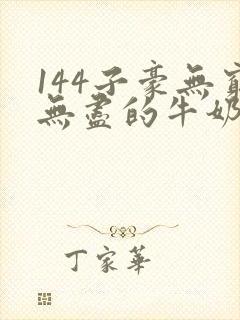 144子豪無窮
無盡的牛奶
丁家華